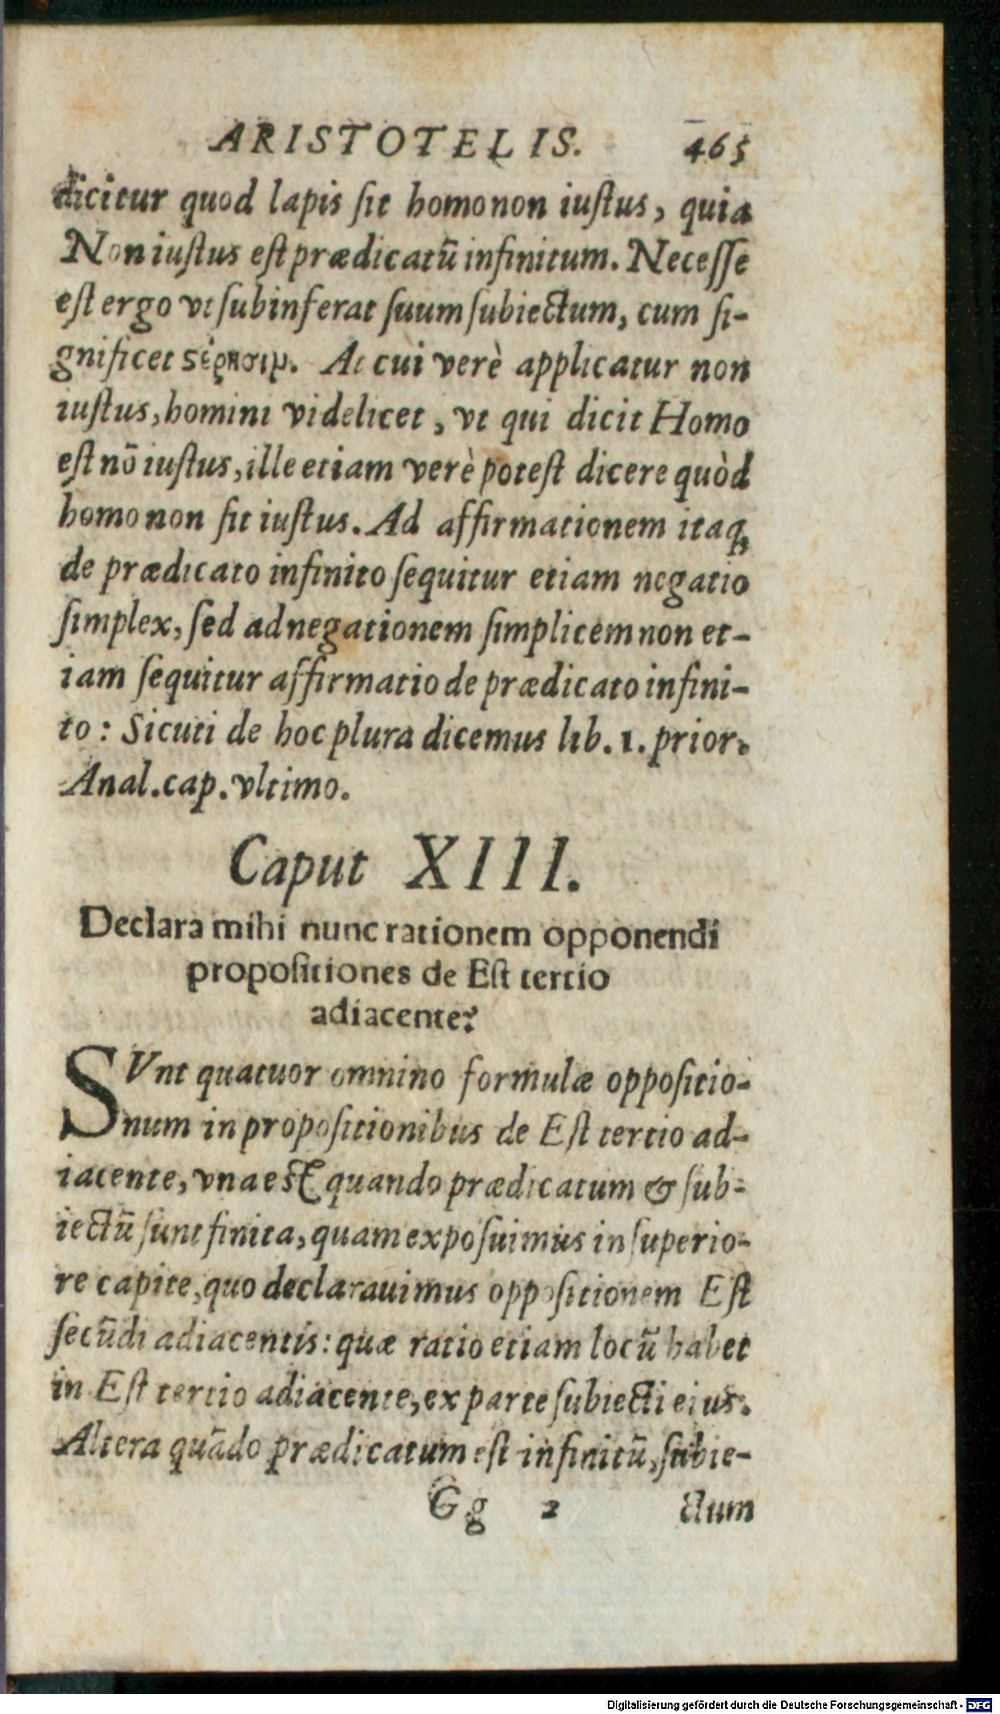 ARISTOTELIS. 465
dicitur quod lapis ſit homo non iuſtus, quia
Non iuſtus eſt prædicatū infinitum. Neceſſe
eſt ergo vt ſubinferat ſuum ſubiectum, cum ſi-
gnificet At cui verè applicatur non
iuſtus, homini videlicet, vt qui dicit Homo
eſt nō iuſtus, ille etiam verè poteſt dicere quòd
homo non ſit iuſtus. Ad affirmationem itaq;
de prædicato infinito ſequitur etiam negatio
ſimplex, ſed ad negationem ſimplicem non et-
iam ſequitur affirmatio de prædicato infini-
to: Sicuti de hoc plura dicemus lib. 1. prior.
Anal. cap. vltimo.
Caput XIII.
Declara mihi nunc rationem opponendi
propoſitiones de Eſt tertio
adiacente?
SVnt quatuor omnino formulæ oppoſitio-
num in propoſitionibus de Eſt tertio ad-
iacente, vna eſt quando prædicatum & ſub-
iectū ſunt finita, quam expoſuimus in ſuperio-
re capite, quo declarauimus oppoſitionem Eſt
ſecūdi adiacentis: quæ ratio etiam locū habet
in Eſt tertio adiacente, ex parte ſubiecti eius.
Altera quādo prædicatum eſt infinitū, ſubie-
Gg 2 ctum
Digitalisierung gefördert durch die Deutsche Forschungsgemeinschaft - DFG